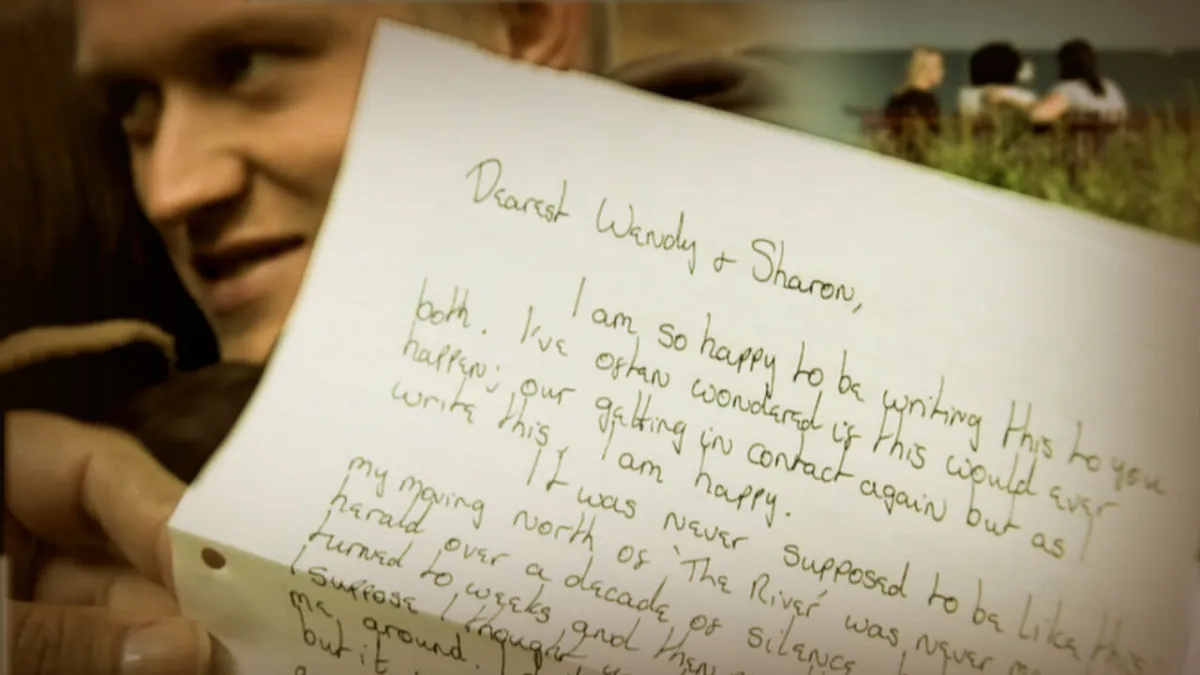 Dearest Wendy + Sharon,
I am so happy to be writing this to you
both. I've often wondered if this would ever
happen; our getting in contact again but as I
write this, I am happy.
It was never supposed to be like this
my moving north of 'The River' was never
herald over a decade of silence
turned to weeks and then
I suppose I thought
me around.
but it